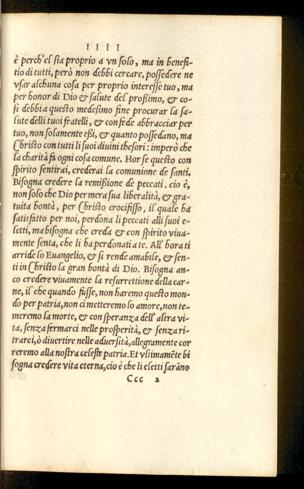 IIII
è perch'el sia proprio a vn solo, ma in benefi-
tio di tutti, però non debbi cercare, possedere ne
vsar alchuna cosa per proprio interesse tuo, ma
per honor di Dio & salute del prossimo, & co-
si debbi a questo medesimo fine procurar la sa-
lute delli tuoi fratelli, & con fede abbracciar per
tuo, non solamente essi, & quanto possedano, ma
Christo con tutti li suoi diuini thesori: imperò che
la charità fà ogni cosa comune. Hor se questo con
spirito sentirai, crederai la comunione de santi.
Bisogna credere la remißiõe de peccati, cio è,
non solo che Dio per mera sua liberalità, & gra-
tuita bontà, per Christo crocifisso, il quale ha
satisfatto per noi, perdona li peccati alli suoi e-
letti, ma bisogna che creda & con spirito viua-
mente senta, che li ha perdonati a te. All'hora ti
arride lo Euangelio, & si rende amabile, & sen-
ti in Christo la gran bontà di Dio. Bisogna an-
co credere viuamente la resurrettione della car-
ne, il che quando fusse, non haremo questo mon-
do per patria, non ci metteremo lo amore, non te-
meremo la morte, & con speranza dell'altra vi-
ta, senza fermarci nelle prosperità, & senza ri-
trarci, ò diuertire nelle aduersità, allegramente cor
reremo alla nostra celeste patria. Et vltimamẽte bi
sogna credere vita eterna, cio è che li eletti sarãno
Ccc 2